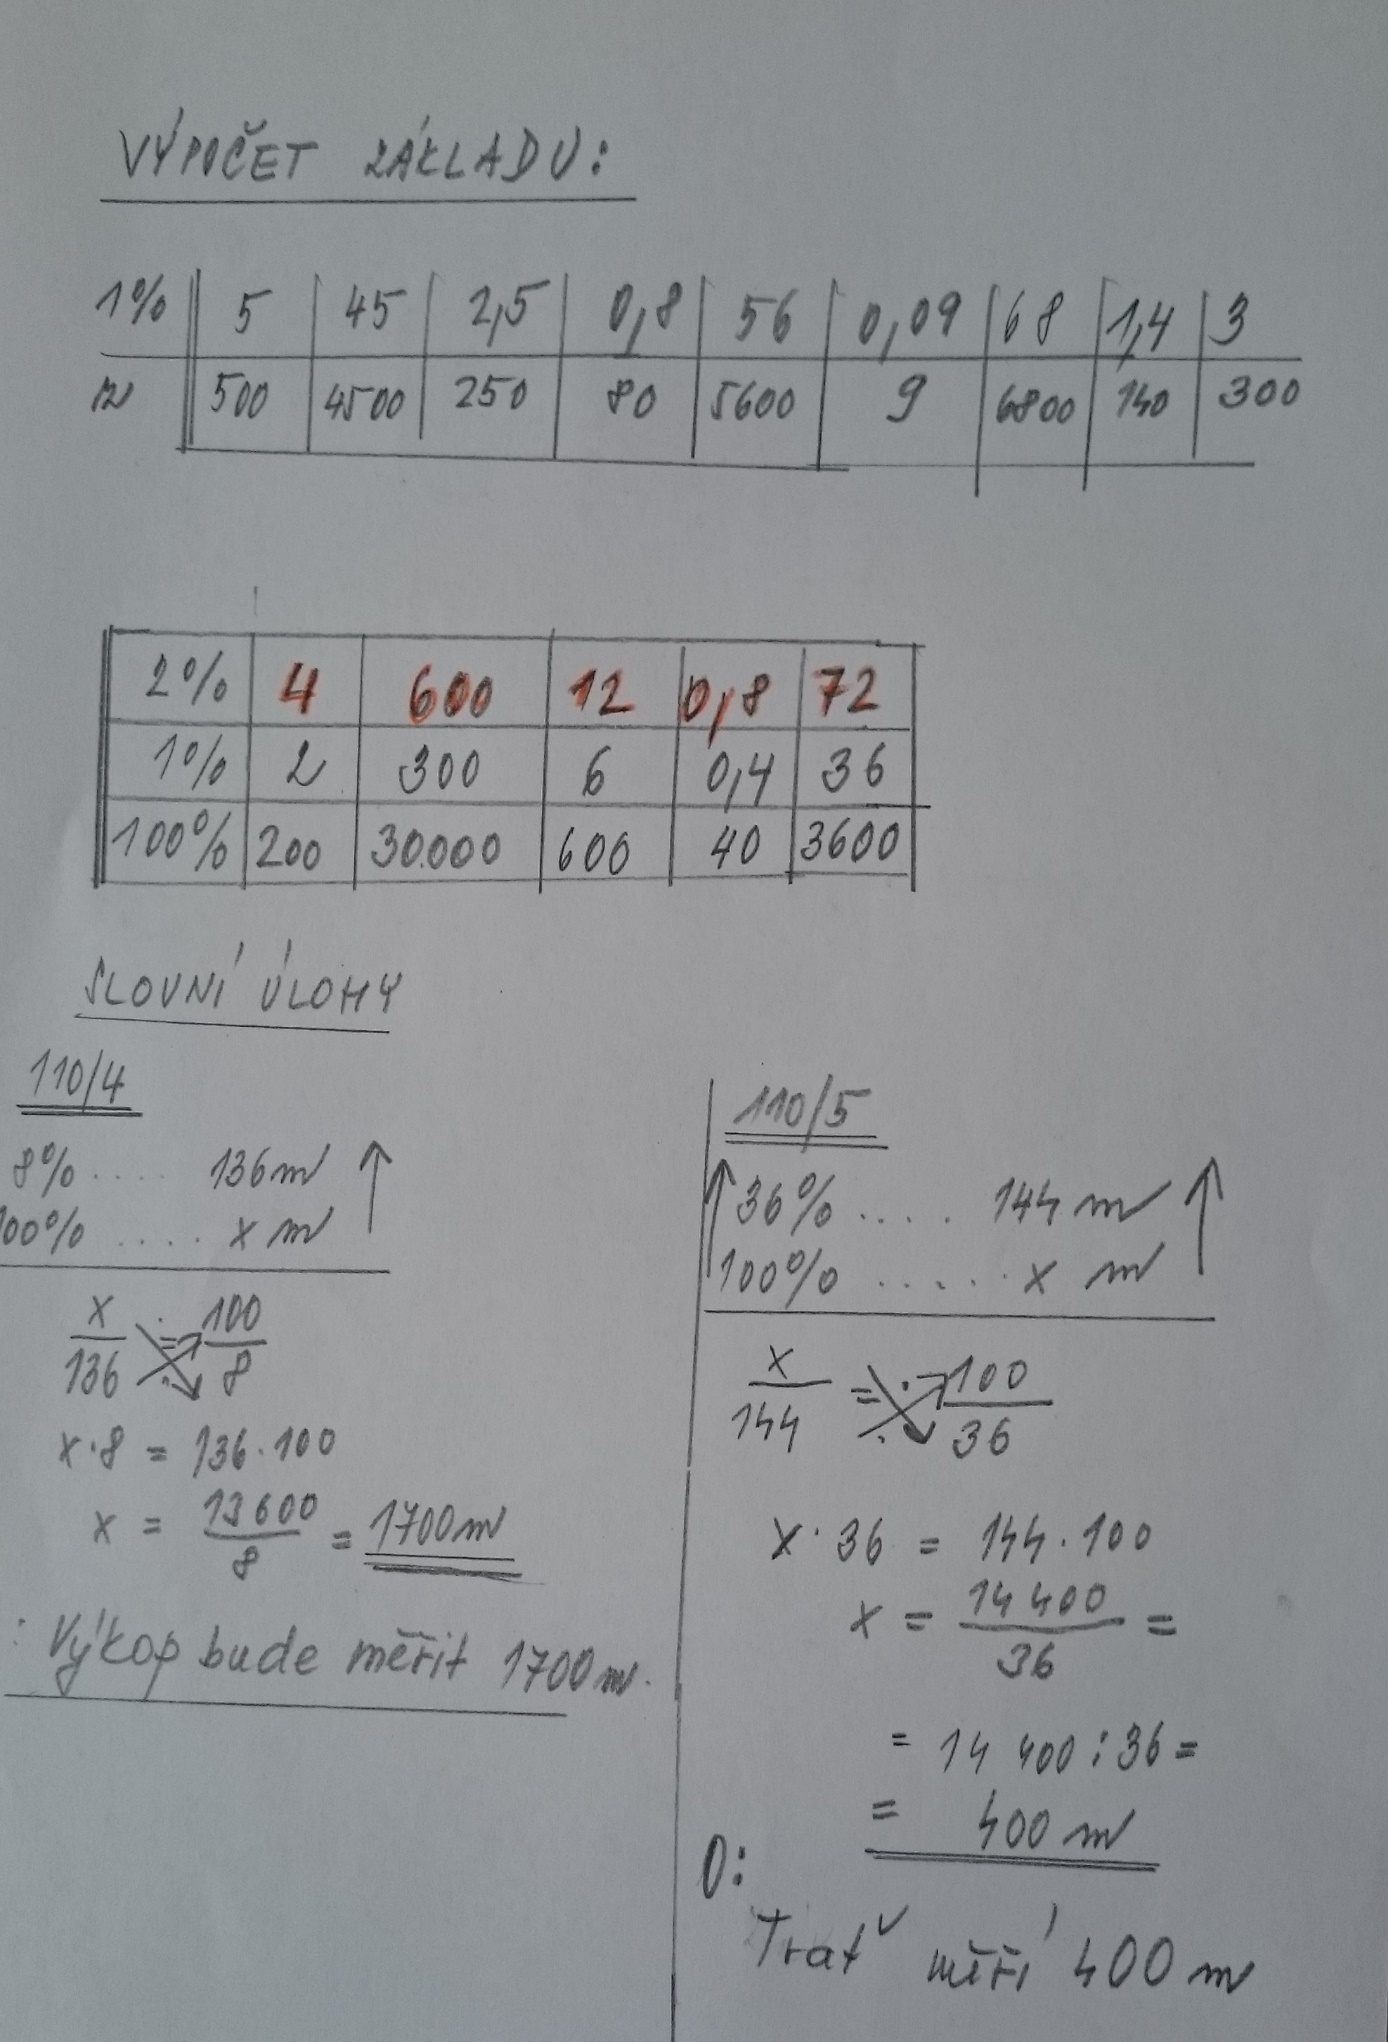 VÝPOČET ZÁKLADU:
1% 5 45 2,5 0,8 56 0,09 68 1,4 3
z 500 4500 250 80 5600 9 6800 140 300
2% 4 600 12 0,8 72
1% 2 300 6 0,4 36
100% 200 30.000 600 40 3600
SLOVNÍ ÚLOHY
110/4
8% .... 136 m ↑
100% .... x m
x/136 = 100/8
x·8 = 136·100
x = 13600/8 = 1700 m
: Výkop bude měřit 1700 m.
110/5
↑ 36% .... 144 m ↑
100% ..... x m
x/144 = 100/36
x·36 = 144·100
x = 14 400/36 =
= 14 400 : 36 =
= 400 m
O:
Trať měří 400 m